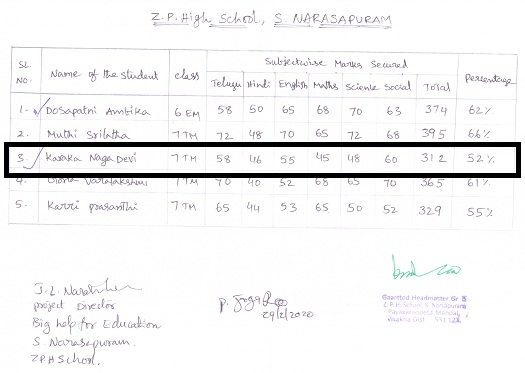 Z.P. High School, S NARASAPURAM
SL NO. Name of the student class Subjectwise Marks Secured Percentage
Telugu Hindi English Maths Science Social Total
1. Dosapatni Ambika 6 EM 58 50 65 68 70 63 374 62%
2. Muthi Srilatha 7 TM 72 48 70 65 72 68 395 66%
3. Karaka Naga Devi 7 TM 58 46 55 45 48 60 312 52%
Varalakshmi 7 TM 70 40 52 68 65 70 365 61%
5. Karri prasanthi 7 TM 65 44 53 65 50 52 329 55%
J. L.
project Director
Big help for Education
S. Narasapuram.
ZPH School.
P.
29/2/2020
Gazetted Headmaster Gr II
Z.P.H. School S. Narsapuram
Mandal
Visakha Dist